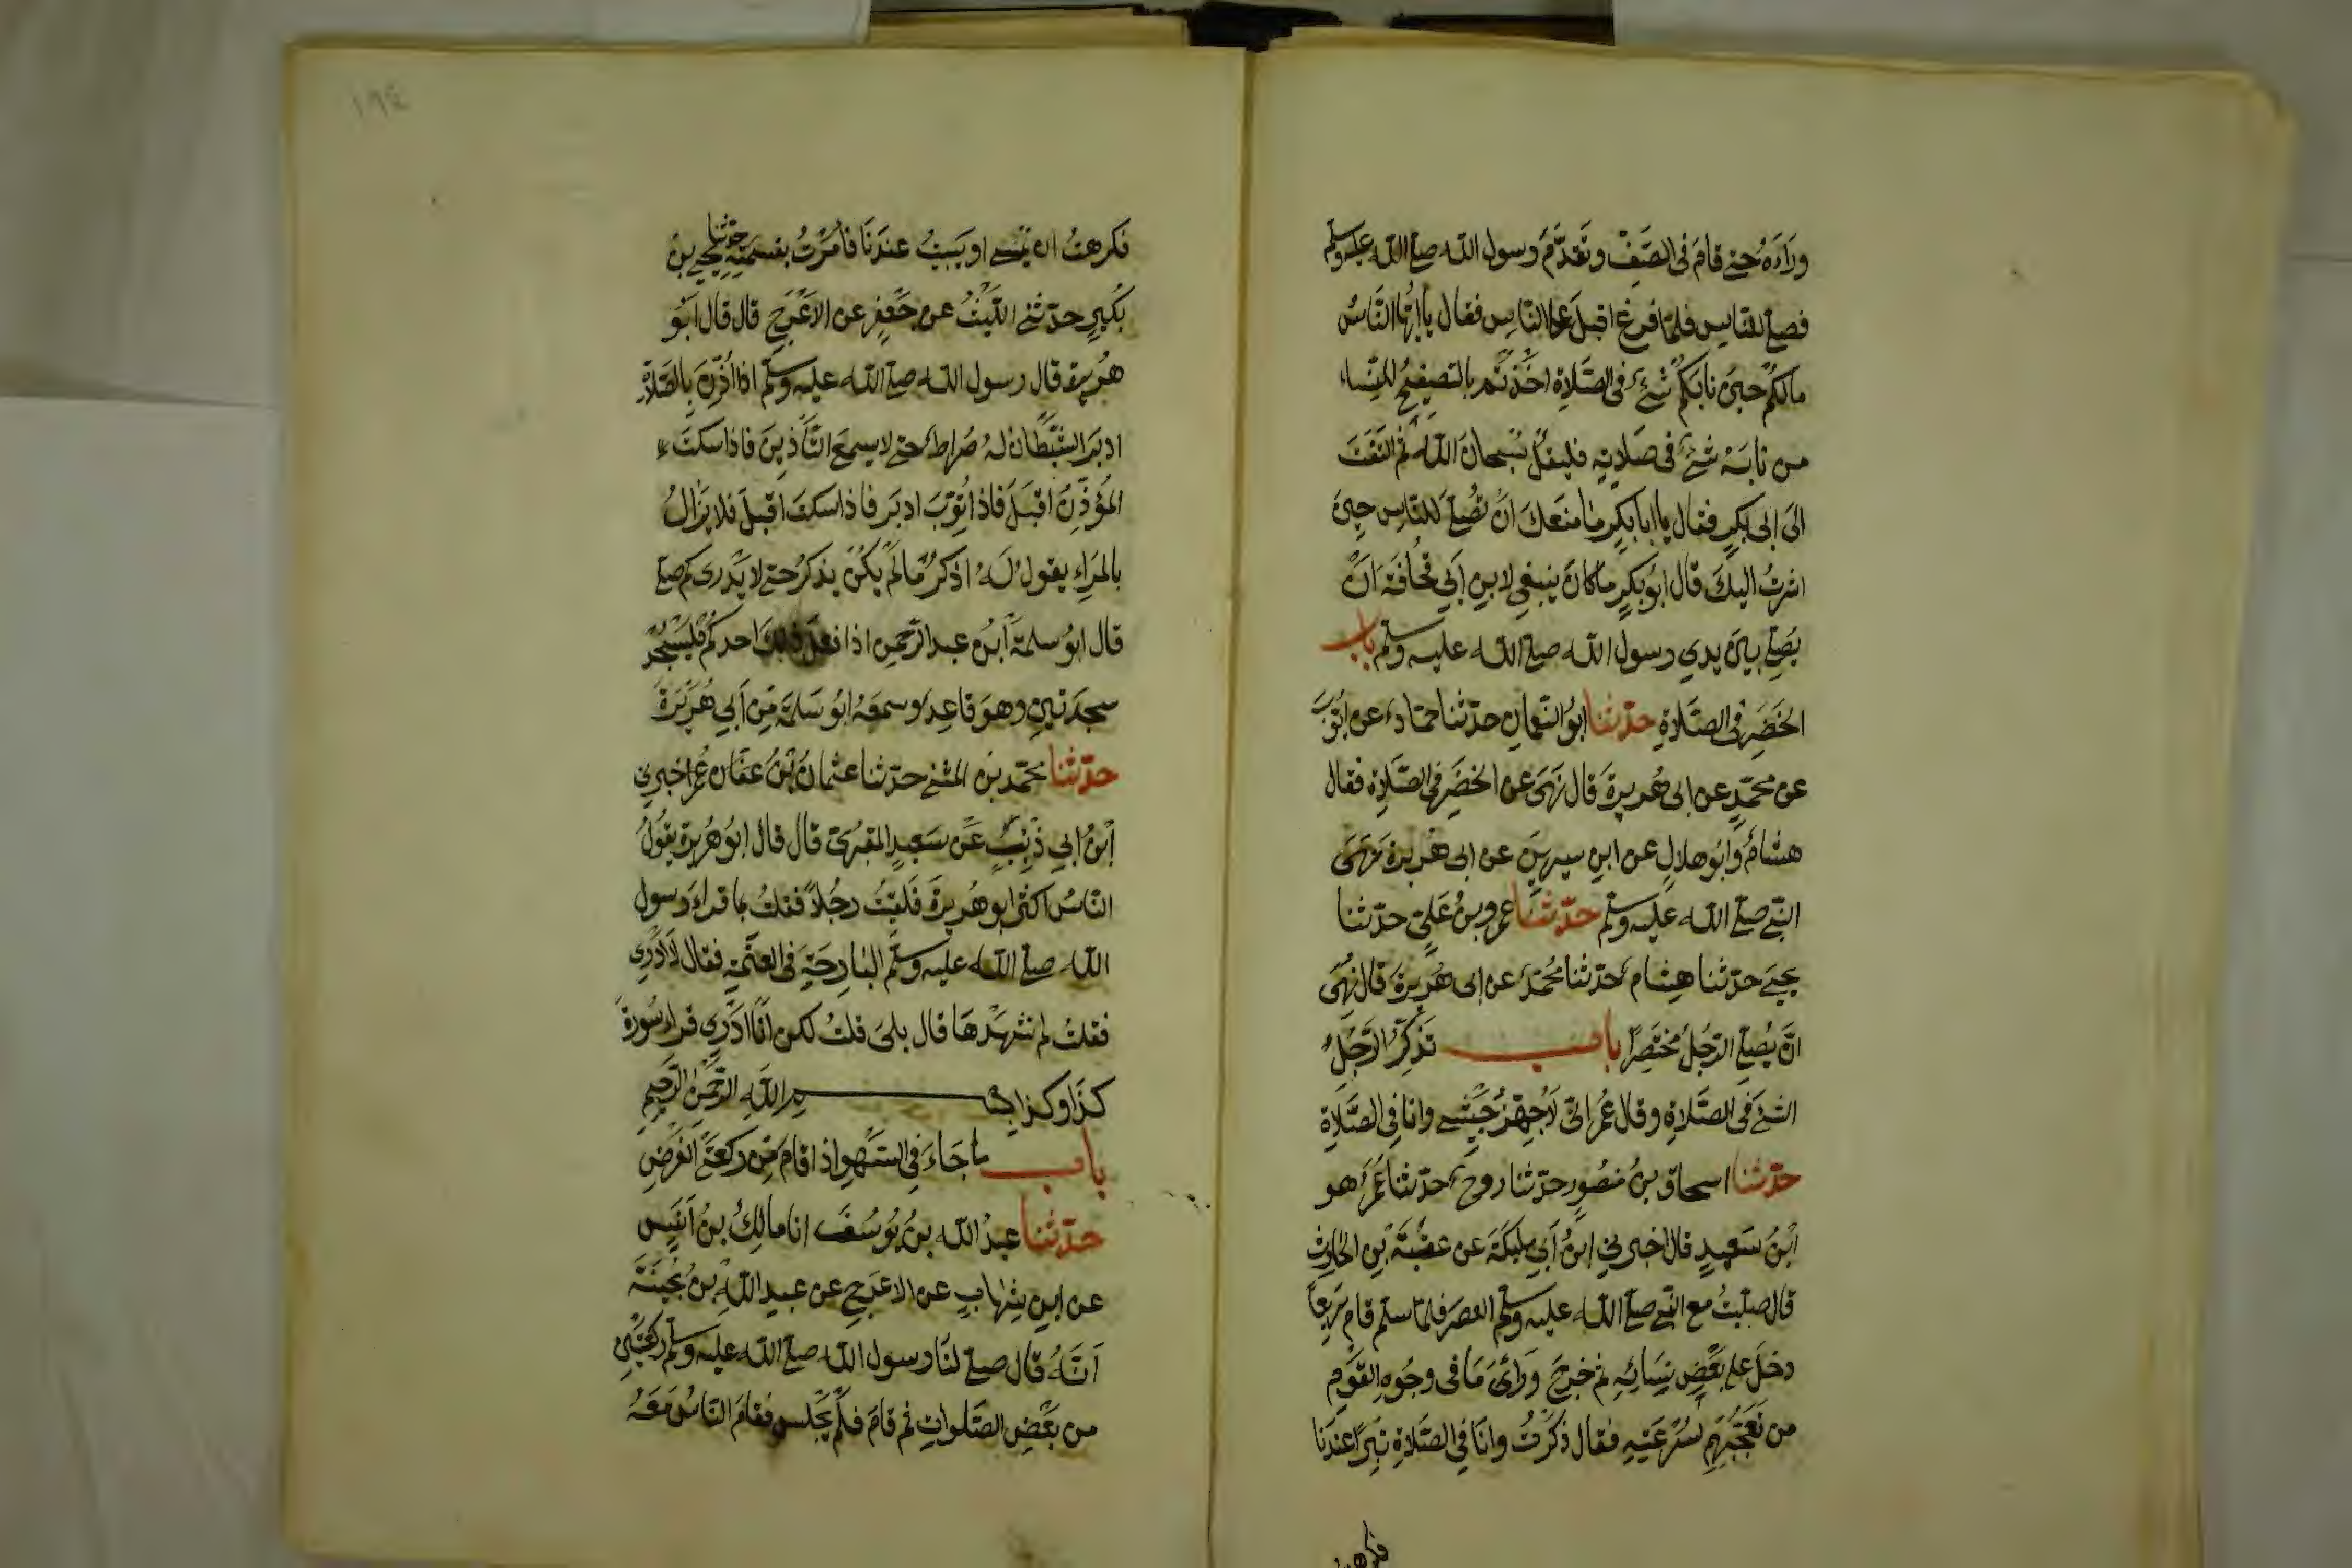 وراءه حتى قام فى الصف وتقدم رسول الله صلى الله عليه وسلم
فصلى للناس فلما فرغ اقبل على الناس فقال يا ايها الناس
مالكم حين نابكم شئ فى الصلاة اخذتم بالتصفيح للنساء
من نابه شئ فى صلاته فليقل سبحان الله ثم التفت
الى ابى بكر فقال يا ابا بكر ما منعك ان تصلى للناس حين
اشرت اليك قال ابو بكر ما كان ينبغى لابن ابي قحافة ان
يصلى بين يدي رسول الله صلى الله عليه وسلم باب
الخصر فى الصلاة حدثنا ابو النعمان حدثنا حماد عن ايوب
عن محمد عن ابى هريرة قال نهى عن الخصر فى الصلاة فقال
هشام وابو هلال عن ابن سيرين عن ابى هريرة نهى
النبى صلى الله عليه وسلم حدثنا عمرو بن على حدثنا
يحيى حدثنا هشام حدثنا محمد عن ابى هريرة قال نهى
ان يصلى الرجل مختصرا باب تذكر الرجل
الشئ فى الصلاة وقال عمر انى لاجهز جيشى وانا فى الصلاة
حدثنا اسحاق بن منصور حدثنا روح حدثنا عمر هو
ابن سعيد قال اخبرني ابن ابي مليكة عن عقبة بن الحارث
قال صليت مع النبى صلى الله عليه وسلم العصر فلما سلم قام سريعا
دخل على بعض نسائه ثم خرج وراى ما فى وجوه القوم
من تعجبهم لسرعته فقال ذكرت وانا فى الصلاة تبرا عندنا
فكرهت
١٩٤
فكرهت ان يمسى او يبيت عندنا فامرت بقسمته حدثنا يحيى بن
بكير حدثنى الليث عن جعفر عن الاعرج قال قال ابو
هريرة قال رسول الله صلى الله عليه وسلم اذا اذن بالصلاة
ادبر الشيطان له ضراط حتى لا يسمع التاذين فاذا سكت
المؤذن اقبل فاذا ثوب ادبر فاذا سكت اقبل فلا يزال
بالمراء يقول له اذكر ما لم يكن يذكر حتى لا يدرى كم صلى
قال ابو سلمة ابن عبد الرحمن اذا فعل ذلك احدكم فليسجد
سجدتين وهو قاعد وسمعه ابو سلمة من ابي هريرة
حدثنا محمد بن المثنى حدثنا عثمان بن عفان عمر اخبرني
ابن ابي ذئب عن سعيد المقبرى قال قال ابو هريرة يقول
الناس اكثر ابو هريرة فلقيت رجلا فقلت بما قراء رسول
الله صلى الله عليه وسلم البارحة فى العتمة فقال لا ادرى
فقلت لم تشهدها قال بلى قلت لكن انا ادري قراء سورة
كذا وكذا بسم الله الرحمن الرحيم
باب ما جاء فى السهو اذا قام من ركعتى الفرض
حدثنا عبد الله بن يوسف انا مالك بن انس
عن ابن شهاب عن الاعرج عن عبد الله بن بحينة
انه قال صلى لنا رسول الله صلى الله عليه وسلم ركعتين
من بعض الصلوات ثم قام فلم يجلس فقام الناس معه